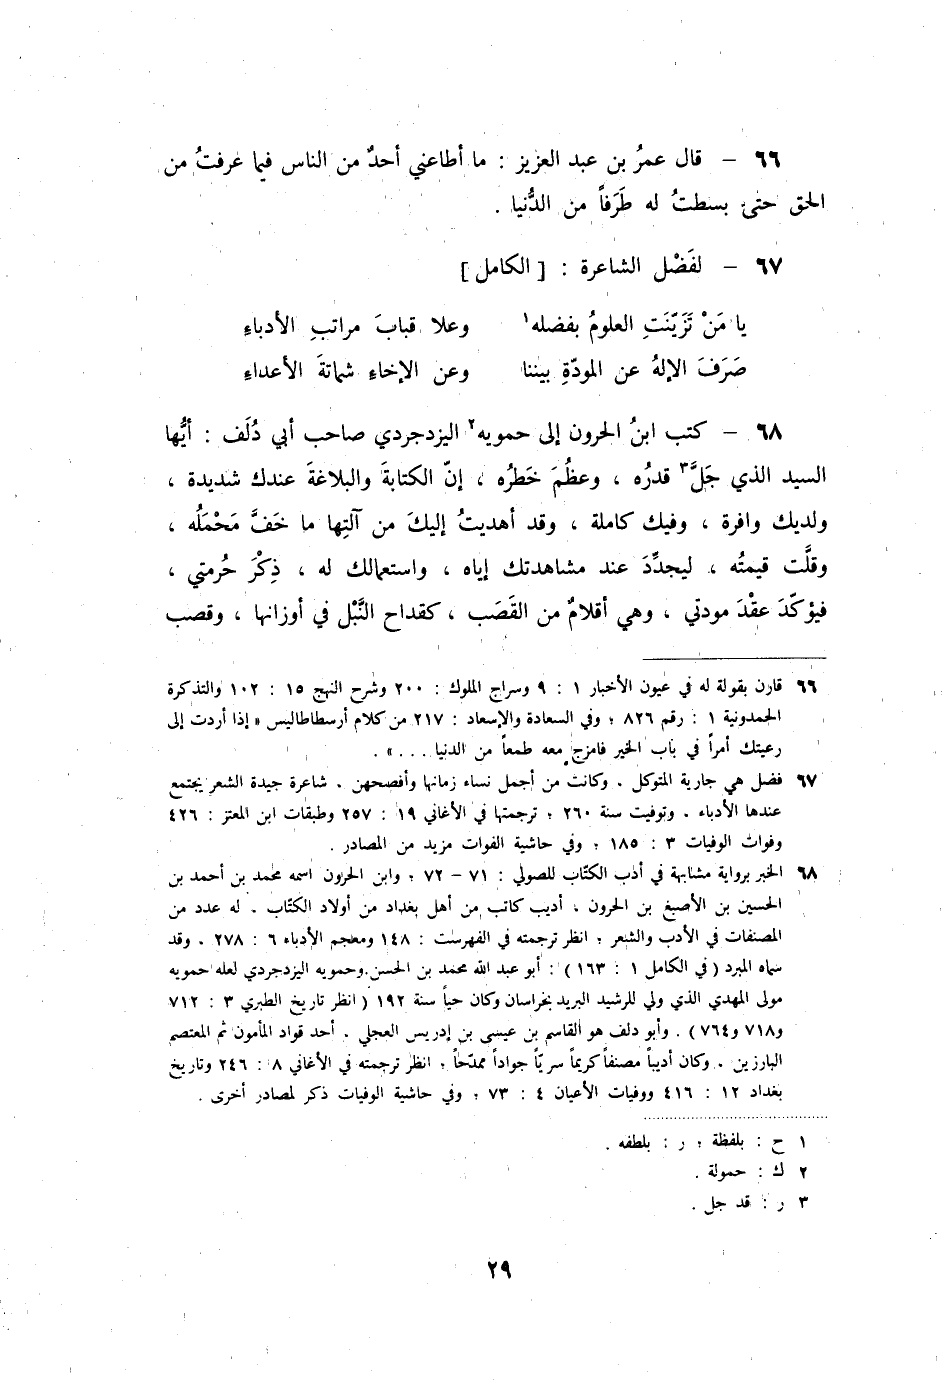 ٦٦ – قال عمرُ بن عبد العزيز : ما أطاعني أحدٌ من الناس فيما عرفتُ من
الحق حتى بسطتُ له طَرَفاً من الدُّنيا .
٦٧ – لفَضْل الشاعرة : [ الكامل ]
يا مَنْ تَزَيّنَتِ العلومُ بفضله١ وعلا قبابَ مراتبِ الأدباءِ
صَرَفَ الإلهُ عن المودّةِ بيننا وعن الإخاءِ شماتةَ الأعداءِ
٦٨ – كتب ابنُ الحرون إلى حمويه٢ اليزدجردي صاحب أبي دُلَف : أيُّها
السيد الذي جَلَّ٣ قدرُه ، وعظُمَ خَطرُه ، إنّ الكتابةَ والبلاغةَ عندك شديدة ،
ولديك وافرة ، وفيك كاملة ، وقد أهديتُ إليكَ من آلتِها ما خَفَّ مَحْمَلُه ،
وقلَّت قيمتُه ، ليجدِّدَ عند مشاهدتك إياه ، واستعمالك له ، ذِكْرَ حُرمتي ،
فيؤكّدَ عقْدَ مودتي ، وهي أقلامٌ من القَصَب ، كقداح النَّبْل في أوزانها ، وقصب
٦٦ قارن بقولة له في عيون الأخبار ١ : ٩ وسراج الملوك : ٢٠٠ وشرح النهج ١٥ : ١٠٢ والتذكرة
الحمدونية ١ : رقم ٨٢٦ ؛ وفي السعادة والإسعاد : ٢١٧ من كلام أرسطاطاليس « إذا أردت إلى
رعيتك أمراً في باب الخير فامزج معه طمعاً من الدنيا ... » .
٦٧ فضل هي جارية المتوكل . وكانت من أجمل نساء زمانها وأفصحهن . شاعرة جيدة الشعر يجتمع
عندها الأدباء . وتوفيت سنة ٢٦٠ ؛ ترجمتها في الأغاني ١٩ : ٢٥٧ وطبقات ابن المعتز : ٤٢٦
وفوات الوفيات ٣ : ١٨٥ ؛ وفي حاشية الفوات مزيد من المصادر .
٦٨ الخبر برواية مشابهة في أدب الكتّاب للصولي : ٧١ – ٧٢ ؛ وابن الحرون اسمه محمد بن أحمد بن
الحسين بن الأصبغ بن الحرون ، أديب كاتب من أهل بغداد من أولاد الكتّاب . له عدد من
المصنفات في الأدب والشعر ؛ انظر ترجمته في الفهرست : ١٤٨ ومعجم الأدباء ٦ : ٢٧٨ . وقد
سماه المبرد ( في الكامل ١ : ١٦٣ ) : أبو عبد الله محمد بن الحسن. وحمويه اليزدجردي لعله حمويه
مولى المهدي الذي ولي للرشيد البريد بخراسان وكان حياً سنة ١٩٢ ( انظر تاريخ الطبري ٣ : ٧١٢
و٧١٨ و٧٦٤ ) . وأبو دلف هو القاسم بن عيسى بن إدريس العجلي . أحد قواد المأمون ثم المعتصم
البارزين . وكان أديباً مصنفاً كريماً سريّاً جواداً ممدّحاً ؛ انظر ترجمته في الأغاني ٨ : ٢٤٦ وتاريخ
بغداد ١٢ : ٤١٦ ووفيات الأعيان ٤ : ٧٣ ؛ وفي حاشية الوفيات ذكر لمصادر أخرى .
١ ح : بلفظة ؛ ر : بلطفه .
٢ ك : حمولة .
٣ ر : قد جل .
٢٩